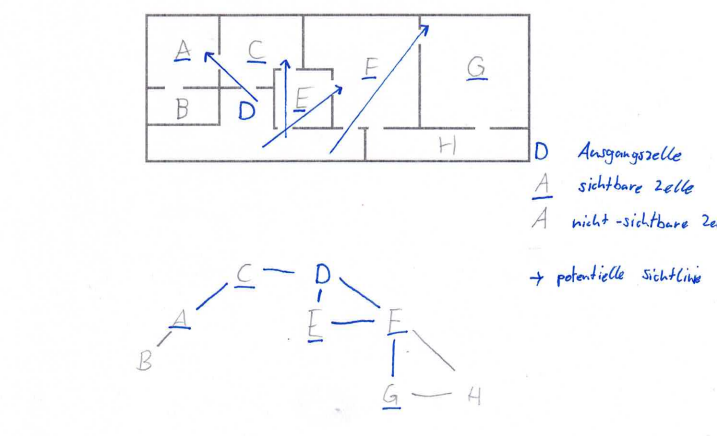 A C F G
B D E
H
D Ausgangszelle
A sichtbare Zelle
A nicht-sichtbare Ze
→ potentielle Sichtlinie
C D
A E F
B
G H